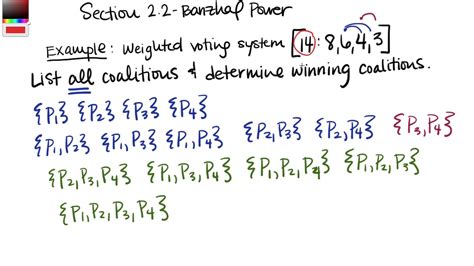 Section 2.2 - Banzhaf Power
Example: Weighted voting system [14: 8,6,4,3]
List all coalitions & determine winning coalitions.
{P₁} {P₂} {P₃} {P₄}
{P₁,P₂} {P₁,P₃} {P₁,P₄} {P₂,P₃} {P₂,P₄} {P₃,P₄}
{P₂,P₃,P₄} {P₁,P₃,P₄} {P₁,P₂,P₄} {P₁,P₂,P₃}
{P₁,P₂,P₃,P₄}